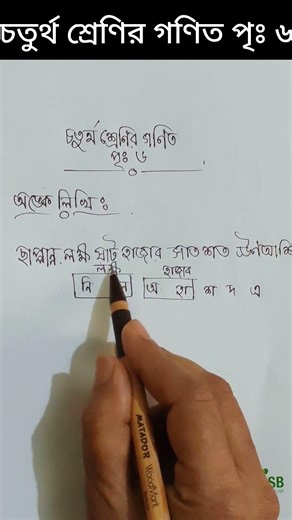 চতুর্থ শ্রেণির গণিত পৃঃ ৬
চতুর্থ শ্রেণির গণিত
পৃঃ ৬
অঙ্কে লিখি :
ছাপ্পান্ন লক্ষ ষাট হাজার সাতশত ঊনআশি
লক্ষ হাজার
নি ল অ হা শ দ এ
MATADOR WoodMart
SB